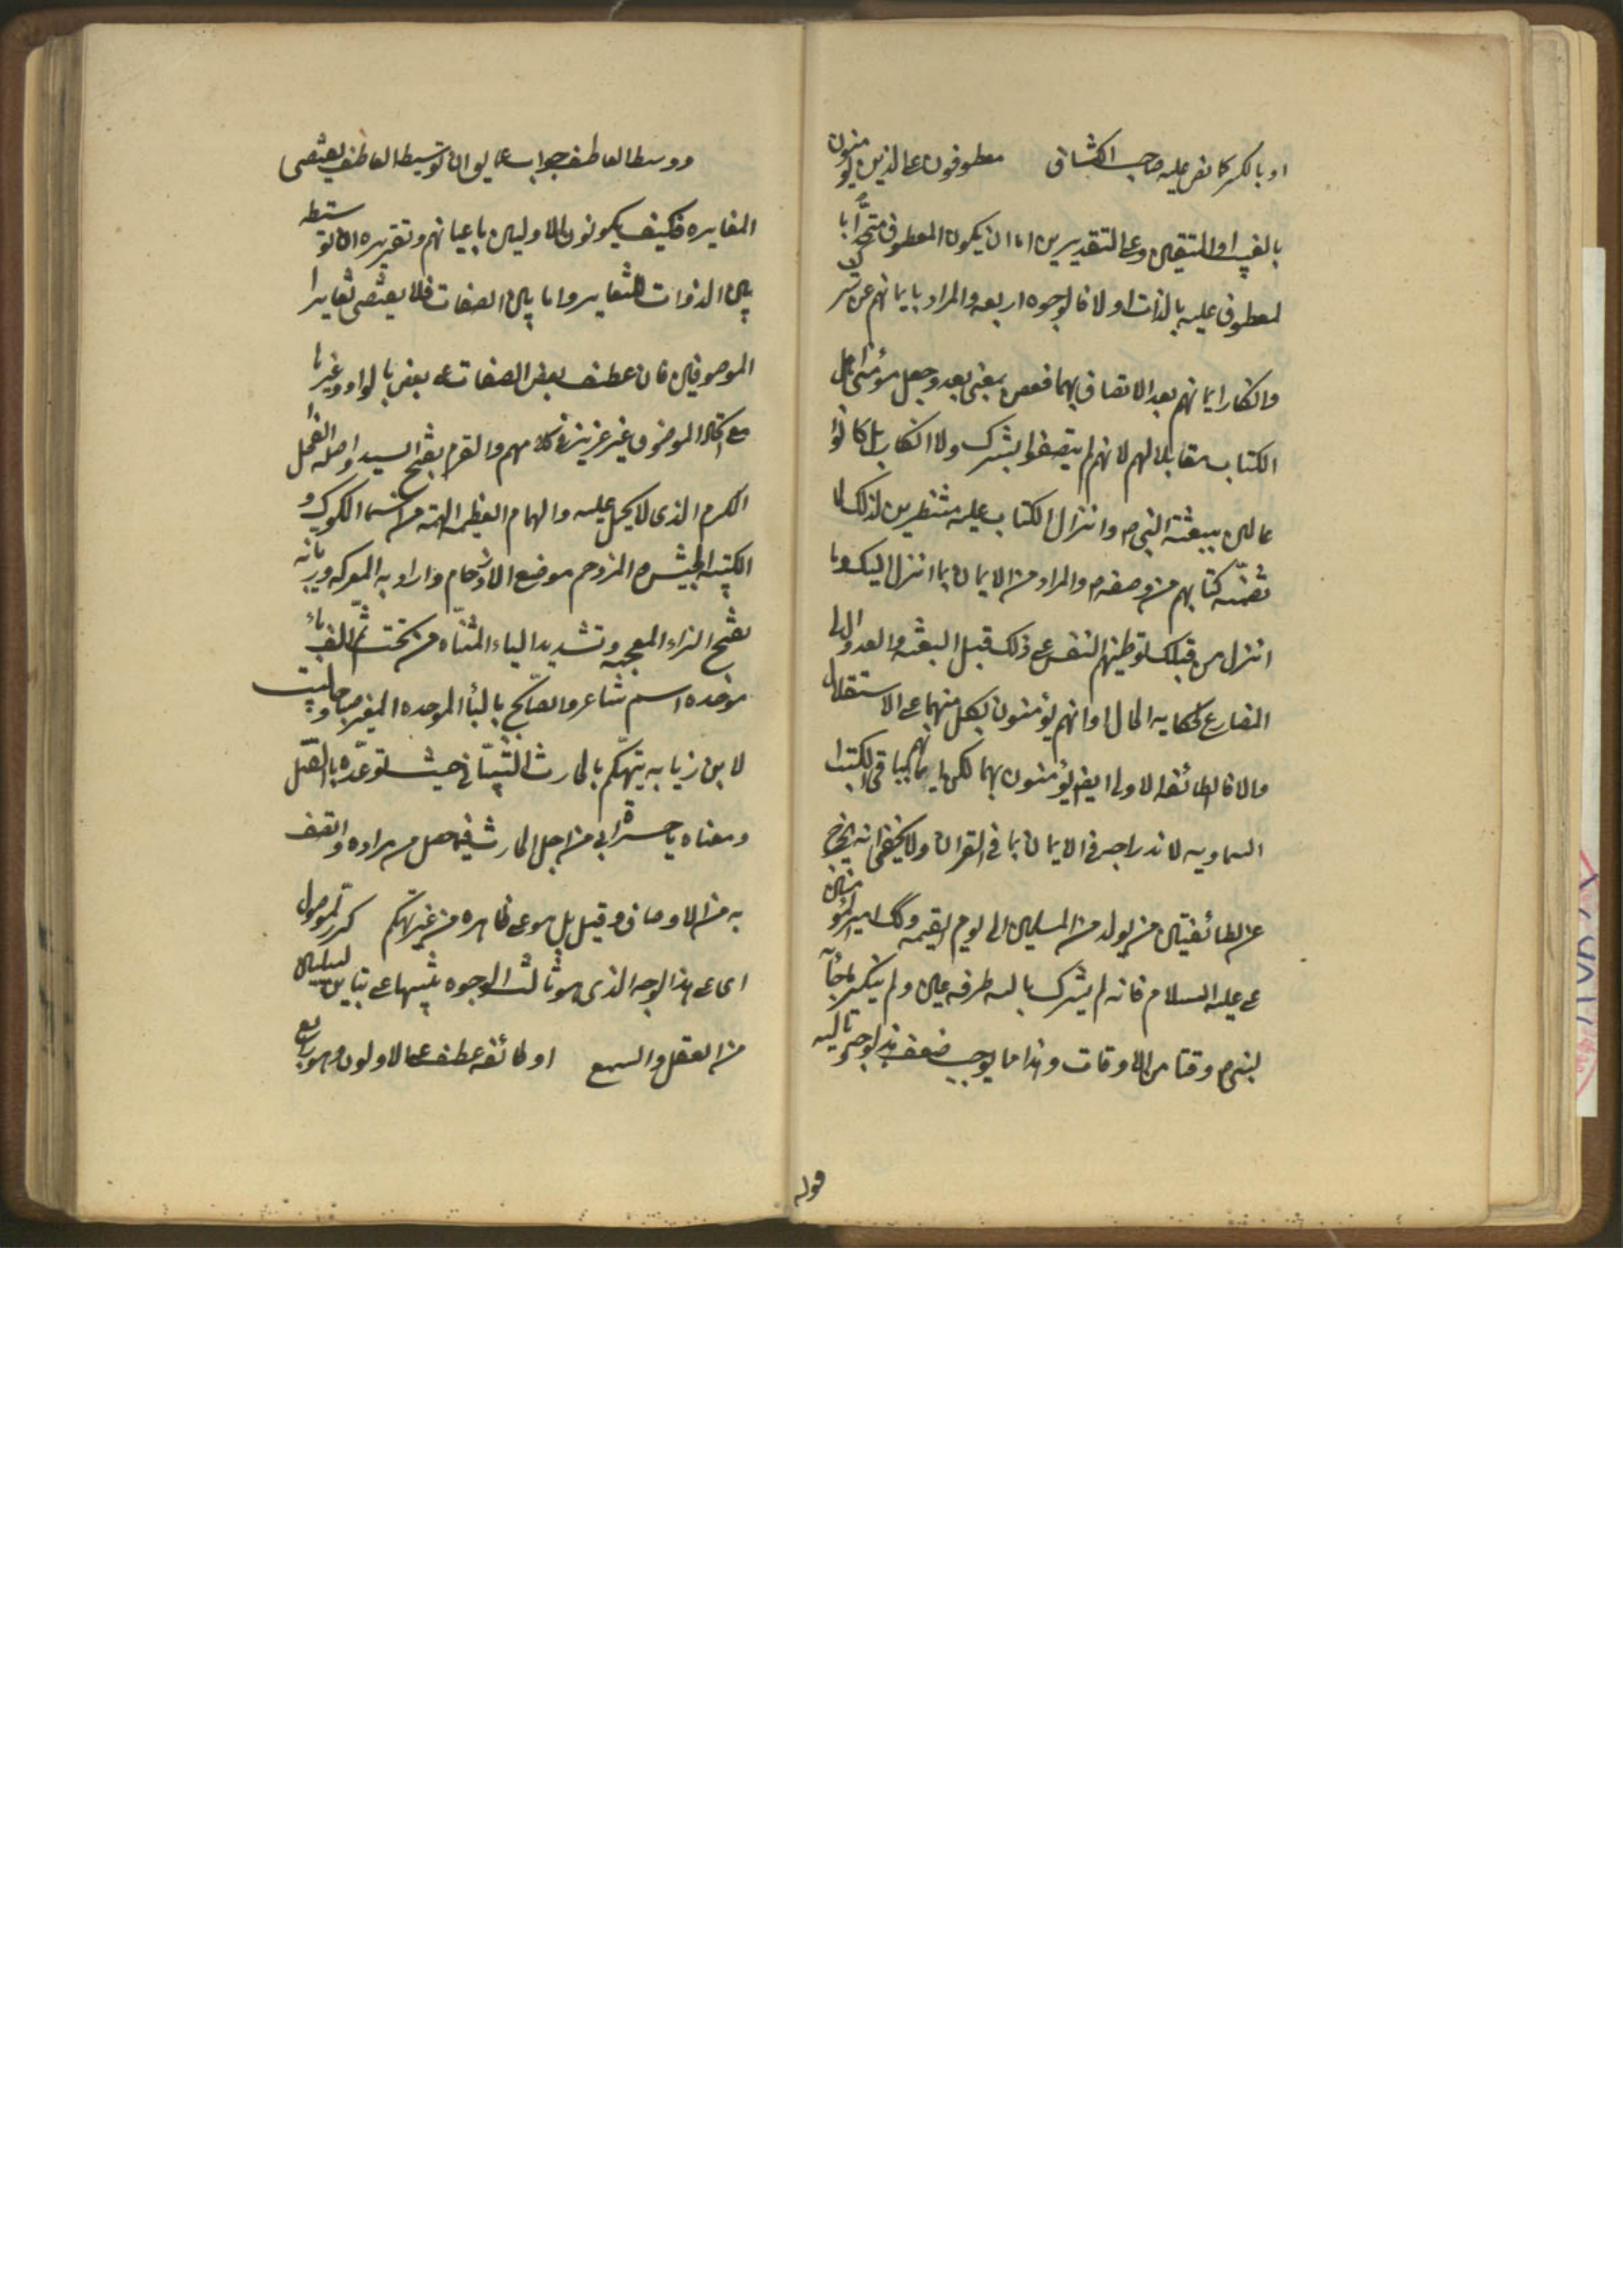 او بالكسر كما نص عليه صاحب الكشاف معطوفون على الذين يؤمنون
بالغيب او المتقين وعلى التقديرين اما ان يكون المعطوف متحدا با
لمعطوف عليه بالذات او لا فالوجوه اربعه والمراد بايمانهم عن شرك
وانكار ايمانهم بعد الاتصاف بهما فعن بمعنى بعد وجعل مؤمني اهل
الكتاب مقابلا لهم لانهم لم يتصفوا بشرك ولا انكار بل كانوا
عالمين ببعثة النبي ص وانزال الكتاب عليه منتظرين لذلك لما
تضمنه كتابهم من وصفه ص والمراد من الايمان بما انزل اليك وما
انزل من قبلك توطينهم النفس على ذلك قبل البعثه والعدول الى
المضارع لحكايه الحال او انهم يؤمنون بكل منهما على الاستقلال
والا فالطائفه الاولى ايضا يؤمنون بهما لكن ايمانهم بباقي الكتب
السماويه لاندراجه في الايمان بما في القران ولا يخفى انه يخرج
عن الطائفتين من يولد من المسلمين الى يوم القيمه وكذا امير المؤمنين
على عليه السلام فانه لم يشرك بالله طرفه عين ولم ينكر ما جاء به
النبي ص وقتا من الاوقات وهذا مما يوجب ضعف هذا الوجه وتاليه
قوله
ووسط العاطف جواب عما يق ان توسيط العاطف يقتضي
المغايره فكيف يكونون الاولين باعيانهم وتقريره ان توسطه
بين الذوات للتغاير واما بين الصفات فلا يقتضي تغاير
الموصوفين فان عطف بعض الصفات على بعض بالواو وغيرها
مع اتحاد الموصوف غير عزيز في كلامهم والقرم بفتح السيد واصله الفحل
المكرم الذي لا يحمل عليه والهمام العظيم الهمه من اسماء الملوك و
الكتيبه الجيش والمزدحم موضع الازدحام واراد به المعركه وزيابه
بفتح الزاء المعجمه وتشديد الياء المثناه من تحت ثم الف باء
موحده اسم شاعر والصابح بالباء الموحده المغير صباحا والبيت
لابن زيابه يتهكم بالحارث الشيباني حيث توعده بالقتل
ومعناه يا حسرة ابي من اجل الحارث فيما حصل من مراده واتصف
به من الاوصاف وقيل بل هو على ظاهره من غير تهكم كرر الموصول
اى على هذا الوجه الذى هو ثالث الوجوه تنبيها على تباين السبيلين
من العقل والسمع او طائفه عطف على الاولون وهو رابع